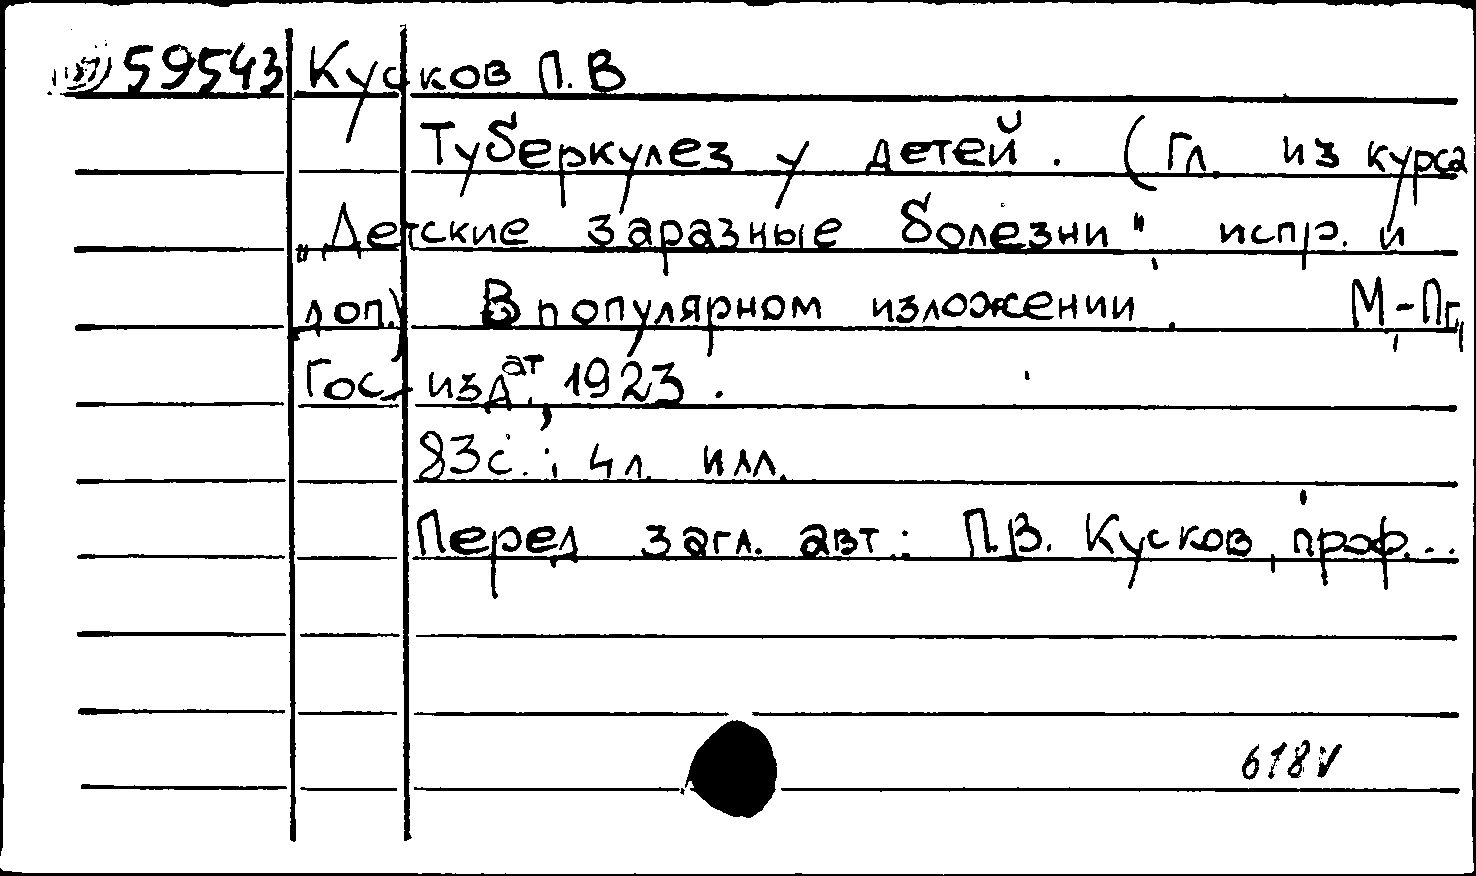 59543 Кусков П. В
Туберкулез у детей. (Гл. из курса
„Детские заразные болезни", испр. и
доп.) В популярном изложении. М.-Пг.,
Гос-издат., 1923.
83с.; 4л. илл.
Перед загл. авт.: П.В. Кусков, проф...
618V